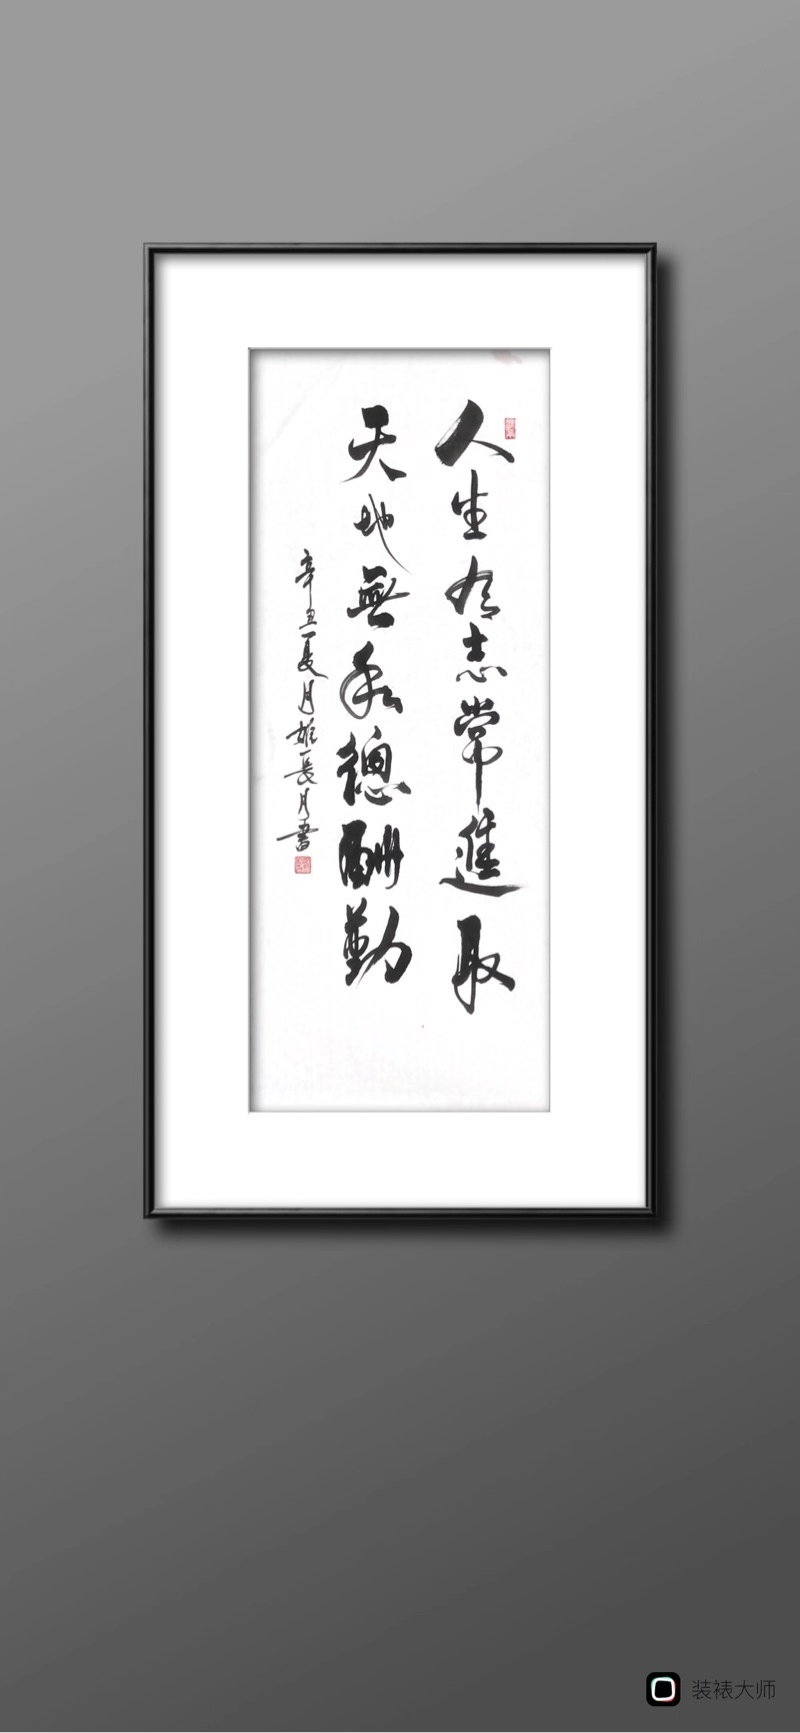 人生有志常進取
天地無私德酬勤
辛丑夏月 長月書
装裱大师